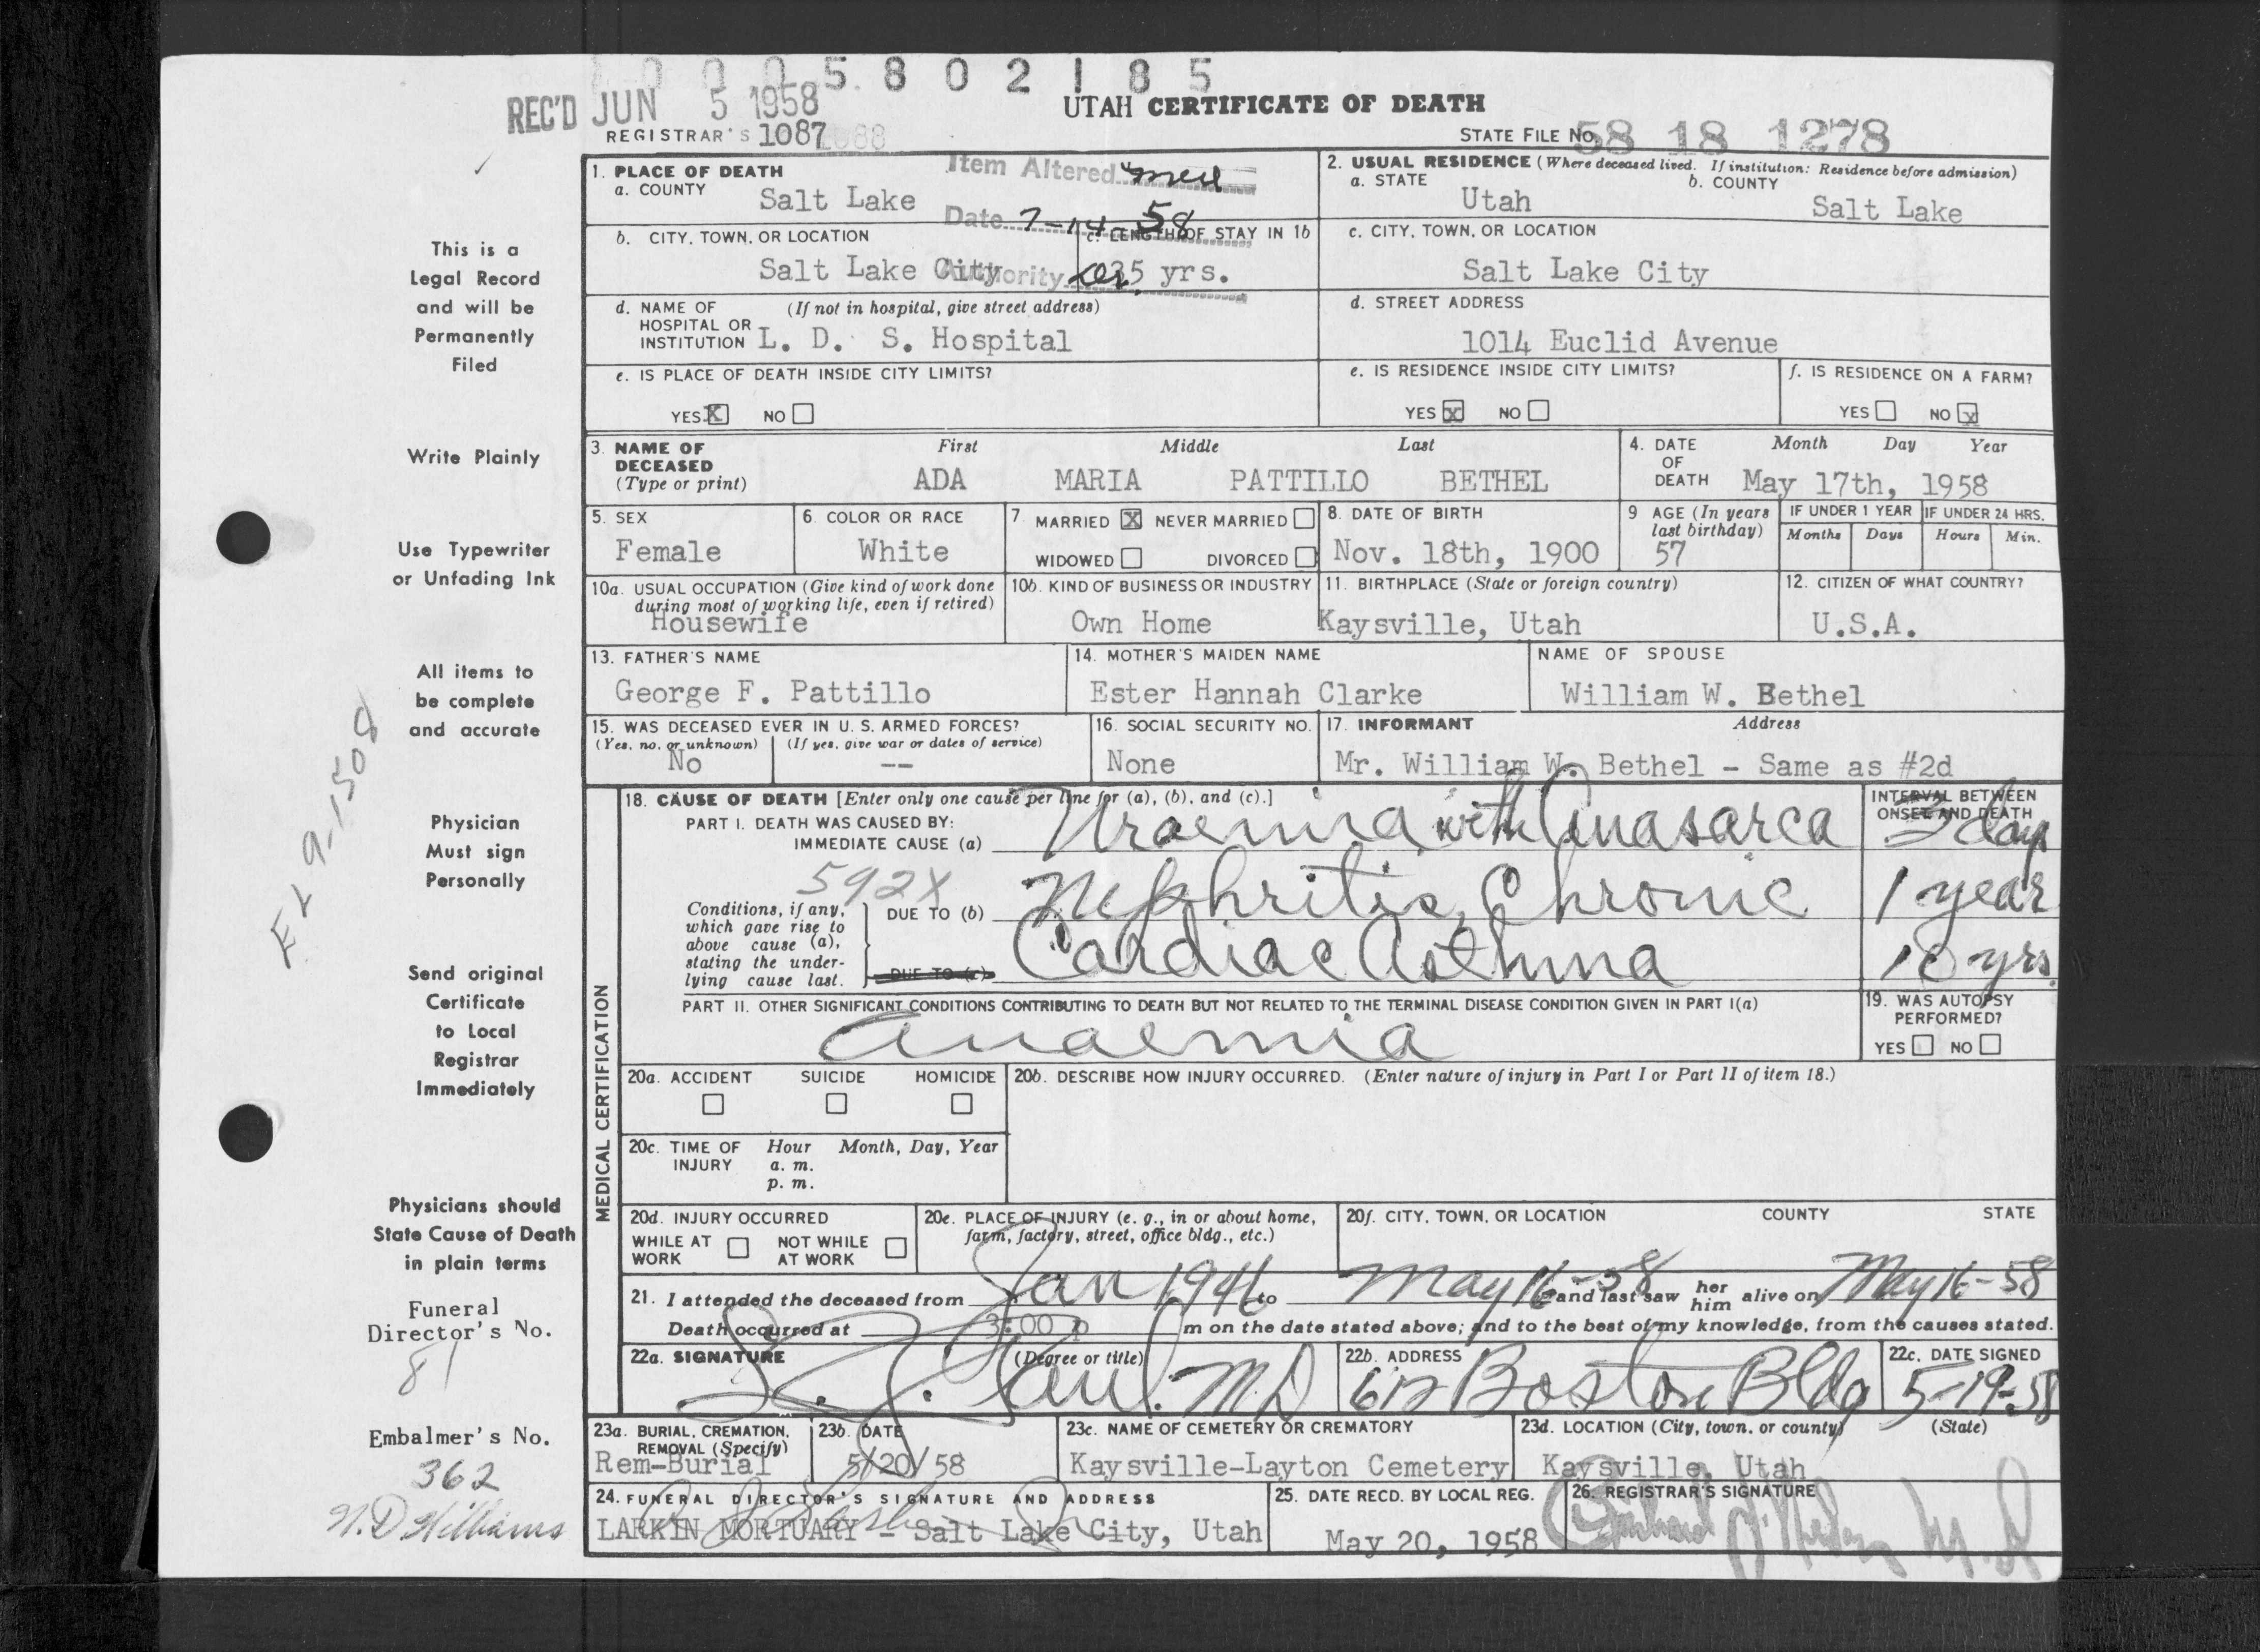 0 0 0 5 8 0 2 1 8 5
REC'D JUN 5 1958
UTAH CERTIFICATE OF DEATH
REGISTRAR'S 1087
STATE FILE No. 58 18 1278
This is a
Legal Record
and will be
Permanently
Filed
Write Plainly
Use Typewriter
or Unfading Ink
All items to
be complete
and accurate
Physician
Must sign
Personally
Send original
Certificate
to Local
Registrar
Immediately
Physicians should
State Cause of Death
in plain terms
Funeral
Director's No.
81
Embalmer's No.
362
N. D Williams
1. PLACE OF DEATH
a. COUNTY
Salt Lake
Item Altered
Date 7-14-58
Authority
2. USUAL RESIDENCE (Where deceased lived. If institution: Residence before admission)
a. STATE b. COUNTY
Utah Salt Lake
b. CITY, TOWN, OR LOCATION
Salt Lake City
c. LENGTH OF STAY IN 1b
35 yrs.
c. CITY, TOWN, OR LOCATION
Salt Lake City
d. NAME OF (If not in hospital, give street address)
HOSPITAL OR
INSTITUTION L. D. S. Hospital
d. STREET ADDRESS
1014 Euclid Avenue
e. IS PLACE OF DEATH INSIDE CITY LIMITS?
YES X NO
e. IS RESIDENCE INSIDE CITY LIMITS?
YES X NO
f. IS RESIDENCE ON A FARM?
YES NO X
3. NAME OF First Middle Last
DECEASED
(Type or print) ADA MARIA PATTILLO BETHEL
4. DATE Month Day Year
OF
DEATH May 17th, 1958
5. SEX
Female
6. COLOR OR RACE
White
7. MARRIED X NEVER MARRIED
WIDOWED DIVORCED
8. DATE OF BIRTH
Nov. 18th, 1900
9 AGE (In years
last birthday)
57
IF UNDER 1 YEAR IF UNDER 24 HRS.
Months Days Hours Min.
10a. USUAL OCCUPATION (Give kind of work done
during most of working life, even if retired)
Housewife
10b. KIND OF BUSINESS OR INDUSTRY
Own Home
11. BIRTHPLACE (State or foreign country)
Kaysville, Utah
12. CITIZEN OF WHAT COUNTRY?
U.S.A.
13. FATHER'S NAME
George F. Pattillo
14. MOTHER'S MAIDEN NAME
Ester Hannah Clarke
NAME OF SPOUSE
William W. Bethel
15. WAS DECEASED EVER IN U. S. ARMED FORCES?
(Yes, no, or unknown) (If yes, give war or dates of service)
No --
16. SOCIAL SECURITY NO.
None
17. INFORMANT Address
Mr. William W. Bethel - Same as #2d
MEDICAL CERTIFICATION
18. CAUSE OF DEATH [Enter only one cause per line for (a), (b), and (c).]
INTERVAL BETWEEN
ONSET AND DEATH
PART I. DEATH WAS CAUSED BY:
IMMEDIATE CAUSE (a) Uraemia with Anasarca 3 days
592X
Conditions, if any,
which gave rise to
above cause (a),
stating the under-
lying cause last.
DUE TO (b) Nephritis, Chronic 1 year
DUE TO (c) Cardiac Asthma 10 yrs.
PART II. OTHER SIGNIFICANT CONDITIONS CONTRIBUTING TO DEATH BUT NOT RELATED TO THE TERMINAL DISEASE CONDITION GIVEN IN PART I(a)
anaemia
19. WAS AUTOPSY
PERFORMED?
YES NO
20a. ACCIDENT SUICIDE HOMICIDE
20b. DESCRIBE HOW INJURY OCCURRED. (Enter nature of injury in Part I or Part II of item 18.)
20c. TIME OF Hour Month, Day, Year
INJURY a. m.
p. m.
20d. INJURY OCCURRED
WHILE AT NOT WHILE
WORK AT WORK
20e. PLACE OF INJURY (e. g., in or about home,
farm, factory, street, office bldg., etc.)
20f. CITY, TOWN, OR LOCATION COUNTY STATE
21. I attended the deceased from Jan 1946 to May 16-58 and last saw her him alive on May 16-58
Death occurred at 3:00 p m on the date stated above; and to the best of my knowledge, from the causes stated.
22a. SIGNATURE (Degree or title)
Paul. M D
22b. ADDRESS
612 Boston Bldg
22c. DATE SIGNED
5-19-58
23a. BURIAL, CREMATION,
REMOVAL (Specify)
Rem-Burial
23b. DATE
5/20/58
23c. NAME OF CEMETERY OR CREMATORY
Kaysville-Layton Cemetery
23d. LOCATION (City, town, or county) (State)
Kaysville, Utah
24. FUNERAL DIRECTOR'S SIGNATURE AND ADDRESS
LARKIN MORTUARY - Salt Lake City, Utah
25. DATE RECD. BY LOCAL REG.
May 20, 1958
26. REGISTRAR'S SIGNATURE
M. D